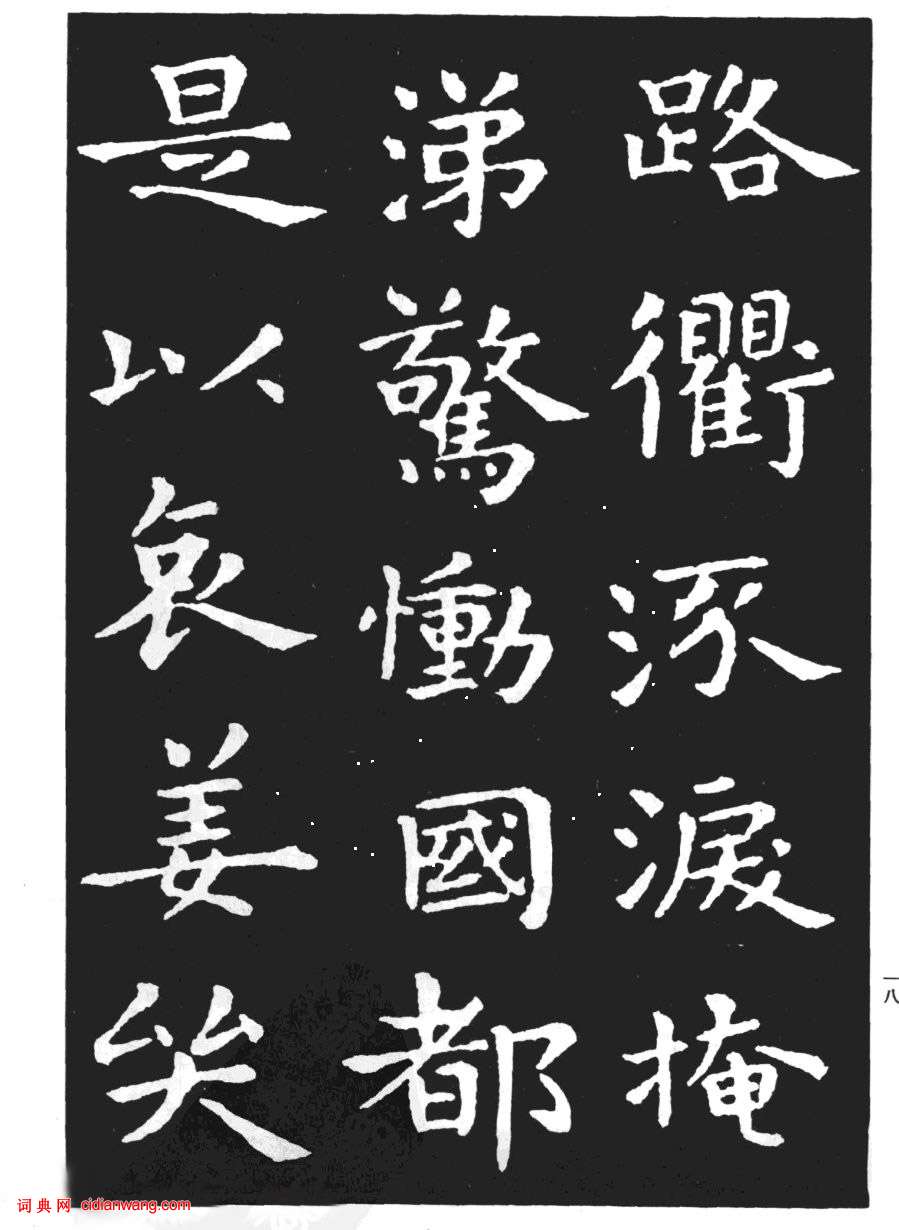 路衢涿淚掩
涕驚慟國都
是以哀姜哭
一八
词典网 cidianwang.com